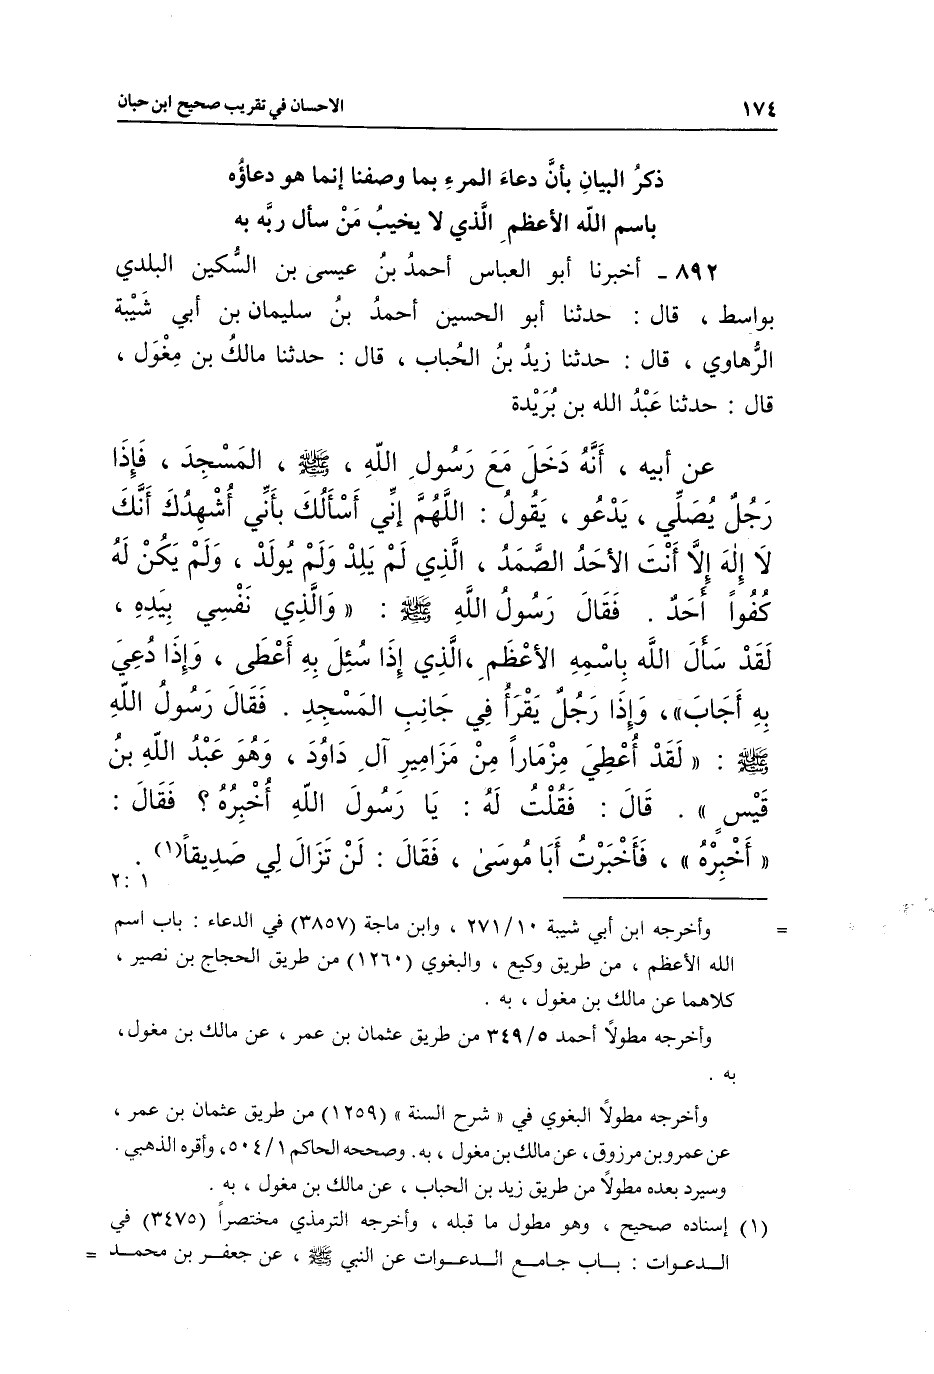 ١٧٤ الاحسان في تقريب صحيح ابن حبان
ذكرُ البيانِ بأنَّ دعاءَ المرءِ بما وصفنا إنما هو دعاؤُه
باسم الله الأعظمِ الَّذي لا يخيبُ مَنْ سأل ربَّه به
٨٩٢ ـ أخبرنا أبو العباس أحمدُ بنُ عيسى بن السُّكين البلدي
بواسط ، قال : حدثنا أبو الحسين أحمدُ بنُ سليمان بن أبي شَيْبة
الرُّهاوي ، قال : حدثنا زيدُ بنُ الحُباب ، قال : حدثنا مالكُ بن مِغْوَل ،
قال : حدثنا عَبْدُ الله بن بُرَيْدة
عن أبيه ، أَنَّهُ دَخَلَ مَعَ رَسُولِ اللّهِ ، ﷺ ، المَسْجِدَ ، فَإِذَا
رَجُلٌ يُصَلِّي ، يَدْعُو ، يَقُولُ : اللَّهُمَّ إِنِّي أَسْأَلُكَ بأَنِّي أُشْهِدُكَ أَنَّكَ
لَا إِلٰهَ إِلَّا أَنْتَ الأَحَدُ الصَّمَدُ ، الَّذِي لَمْ يَلِدْ وَلَمْ يُولَدْ ، وَلَمْ يَكُنْ لَهُ
كُفُواً أَحَدٌ . فَقَالَ رَسُولُ اللَّهِ ﷺ : « وَالَّذِي نَفْسِي بِيَدِهِ ،
لَقَدْ سَأَلَ الله بِاسْمِهِ الأَعْظَمِ ،الَّذِي إِذَا سُئِلَ بِهِ أَعْطَى ، وَإِذَا دُعِيَ
بِهِ أَجَابَ»، وَإِذَا رَجُلٌ يَقْرَأُ فِي جَانِبِ المَسْجِدِ . فَقَالَ رَسُولُ اللّهِ
ﷺ : « لَقَدْ أُعْطِيَ مِزْمَاراً مِنْ مَزَامِيرِ آلِ دَاوُدَ ، وَهُوَ عَبْدُ اللّهِ بنُ
قَيْسٍ » . قَالَ : فَقُلْتُ لَهُ : يَا رَسُولَ اللّهِ أُخْبِرُهُ ؟ فَقَالَ :
« أَخْبِرْهُ » ، فَأَخْبَرْتُ أَبَا مُوسَىٰ ، فَقَالَ : لَنْ تَزَالَ لِي صَدِيقاً(١) .
٢:١
= وأخرجه ابن أبي شيبة ٢٧١/١٠ ، وابن ماجة (٣٨٥٧) في الدعاء : باب اسم
الله الأعظم ، من طريق وكيع ، والبغوي (١٢٦٠) من طريق الحجاج بن نصير ،
كلاهما عن مالك بن مغول ، به .
وأخرجه مطولاً أحمد ٣٤٩/٥ من طريق عثمان بن عمر ، عن مالك بن مغول،
به .
وأخرجه مطولًا البغوي في « شرح السنة » (١٢٥٩) من طريق عثمان بن عمر ،
عن عمرو بن مرزوق، عن مالك بن مغول ، به. وصححه الحاكم ٥٠٤/١، وأقره الذهبي .
وسيرد بعده مطولاً من طريق زيد بن الحباب ، عن مالك بن مغول ، به .
(١) إسناده صحيح ، وهو مطول ما قبله ، وأخرجه الترمذي مختصراً (٣٤٧٥) في
الدعوات : باب جامع الدعوات عن النبي ﷺ ، عن جعفر بن محمد =